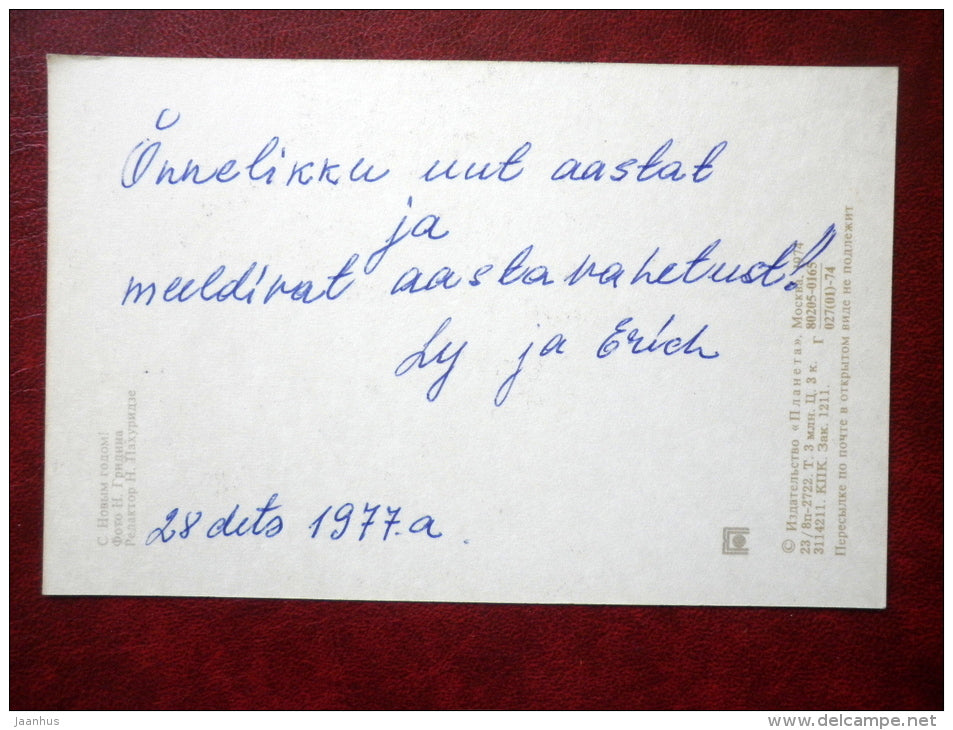 Õnnelikku uut aastat
ja
meeldivat aastavahetust!
Ly ja Erich
28 dets 1977.a.
С Новым годом!
Фото Н. Гридина
Редактор Н. Пахуридзе
© Издательство «Планета». Москва, 1974
23/8п-2722. Т. 3 млн. Ц. 3 к. Г 80205-0165
027(01)-74
3114211. КПК. Зак. 1211.
Пересылке по почте в открытом виде не подлежит
jaanhus
www.delcampe.net